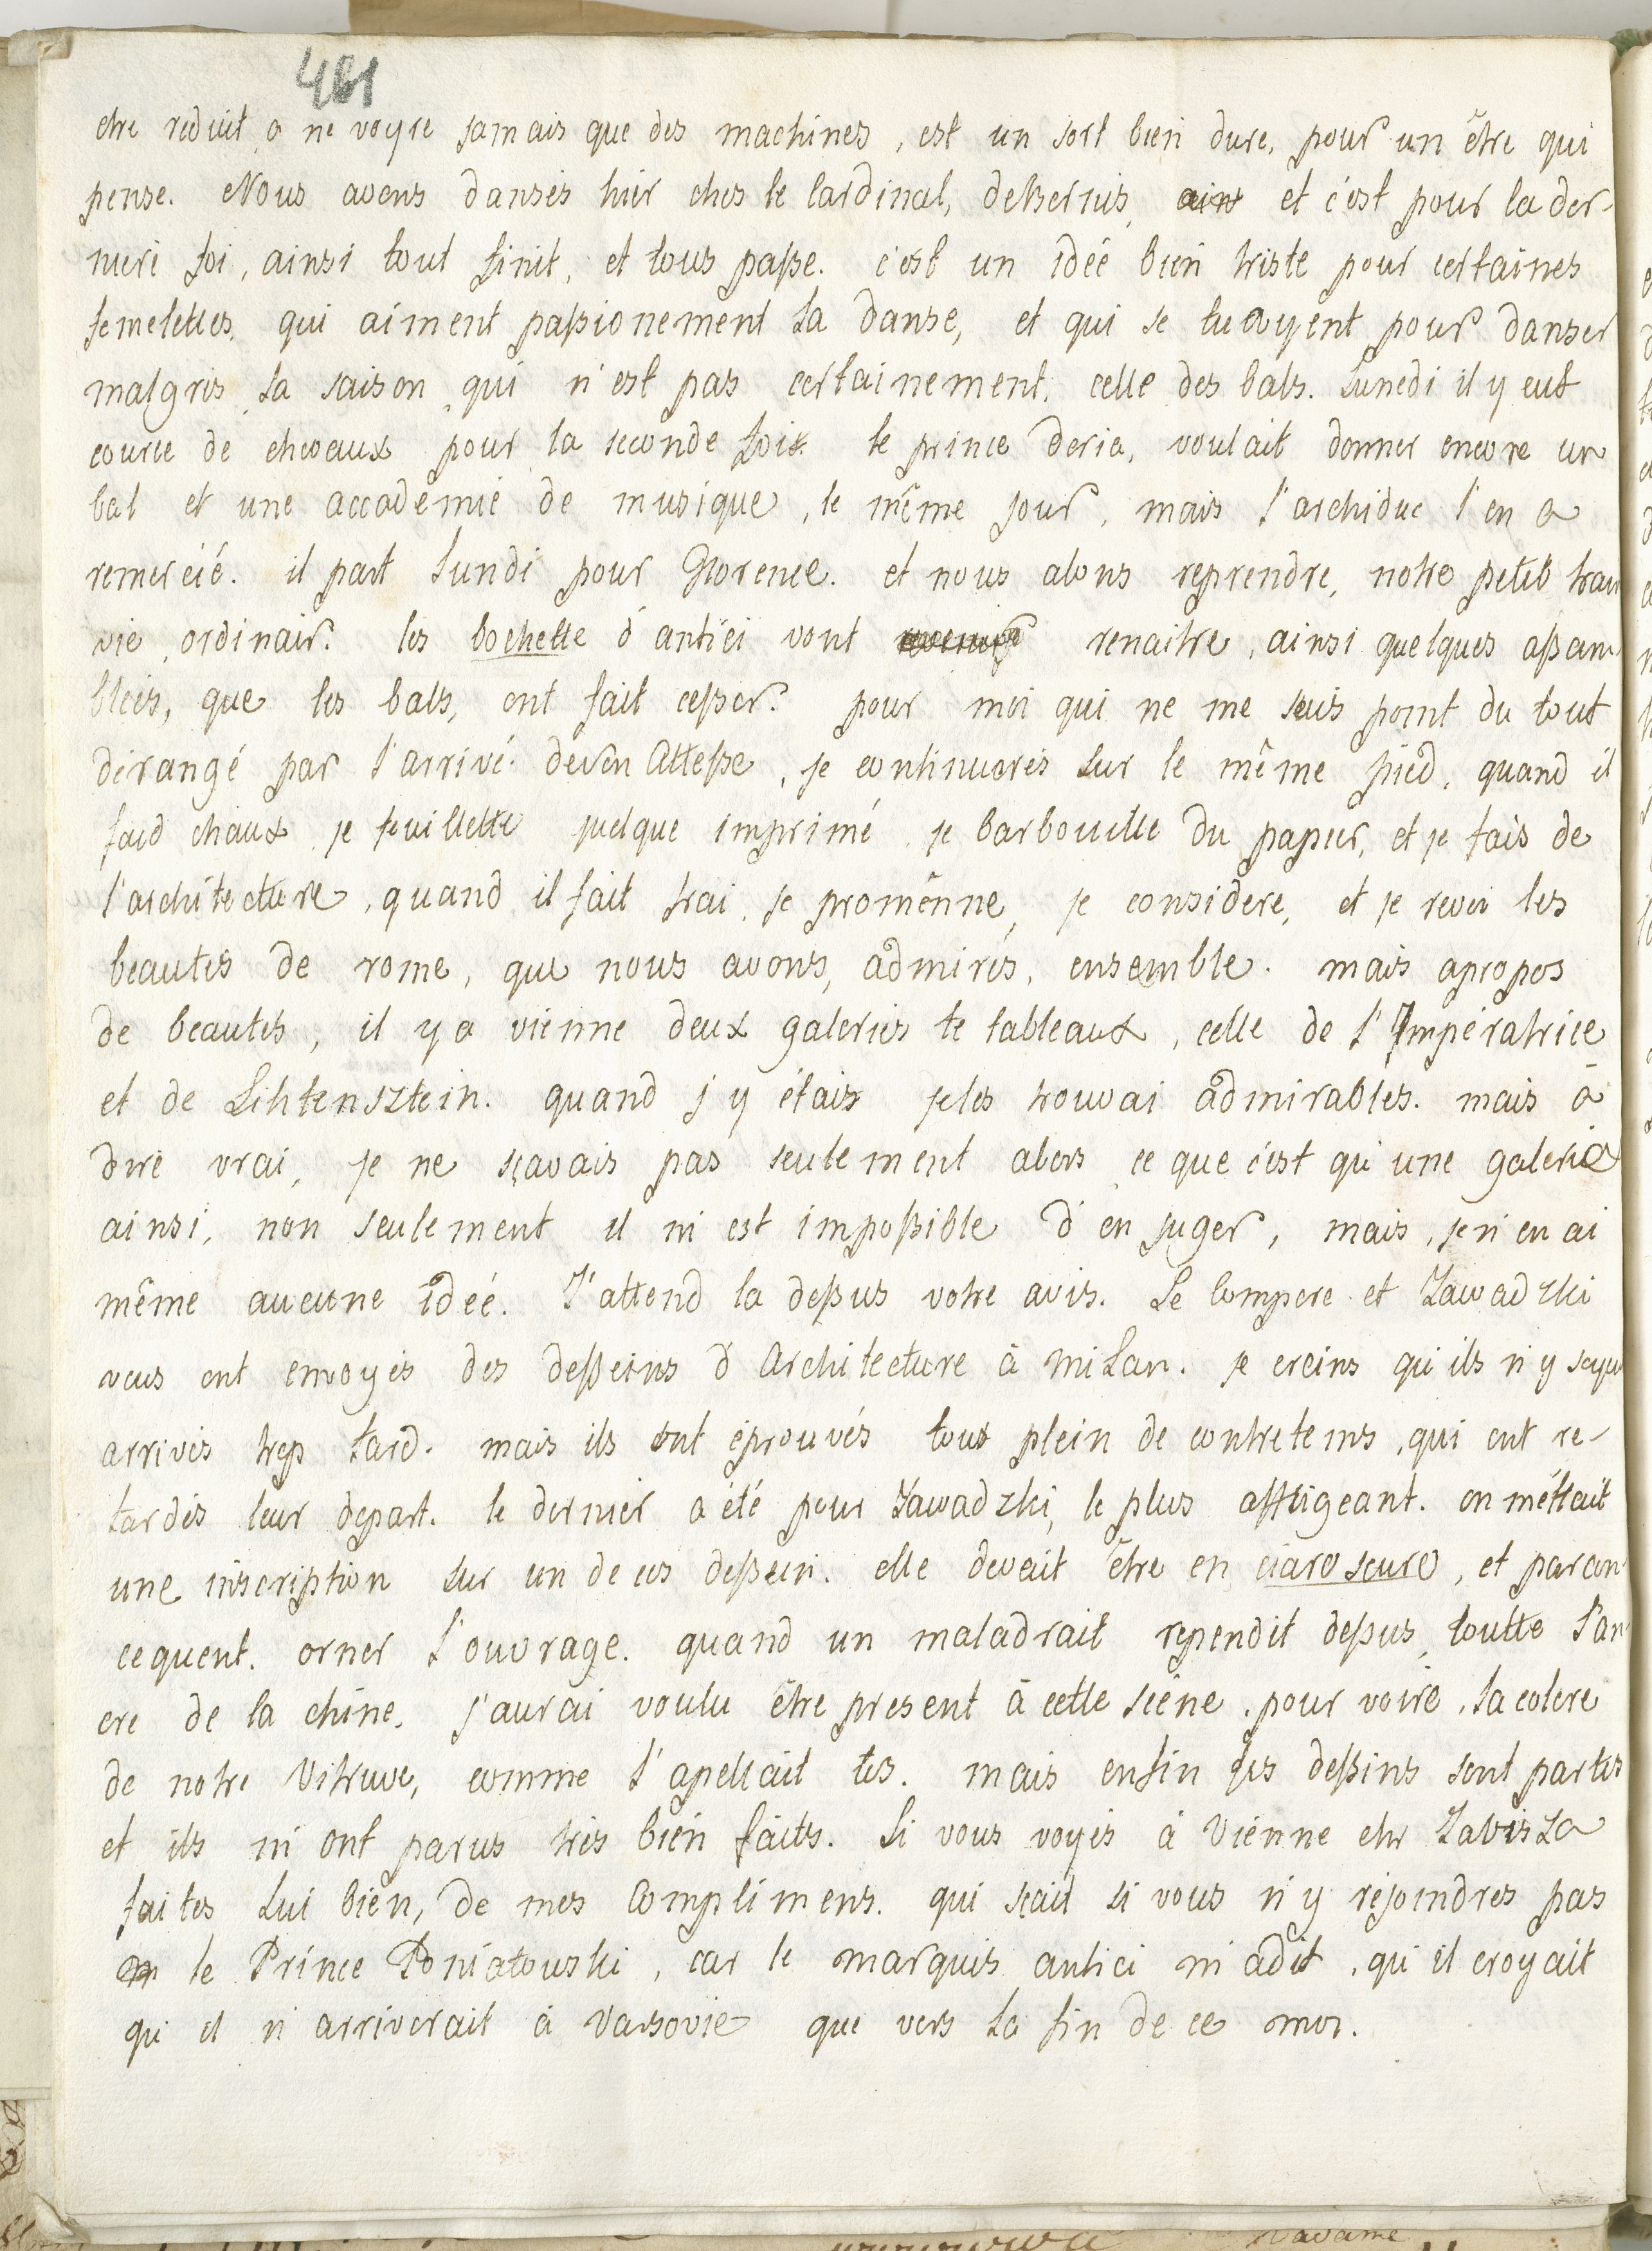 461
etre reduit a ne voyre jamais que des machines, est un sort bien dure, pour un être qui
pense. Nous avons dansés hier ches le Cardinal, deBernis, et c'est pour la der-
niere foi, ainsi tout finit, et tous passe. c'est un idée bien triste pour certaines
femelettes, qui aiment passionement la danse, et qui se tuoyent pour danser
malgres la saison qui n'est pas certainement, celle des bals. Lunedi il y eut
cource de chevaux pour la seconde fois le prince doria, voulait donner encore un
bal et une accademie de musique, le même jour, mais l'archiduc l'en a
remercié. il part Lundi pour Florence. et nous alons reprendre, notre petit trai
vie, ordinair. les bochette d'antici vont renaitre, ainsi quelques assam-
blées, que les bals, ont fait cesser. pour moi qui ne me suis point du tout
dérangé par l'arrivé de son Altesse, je continueres sur le même pied, quand il
faid chaux je feuillette quelque imprimé je barbouille du papier, et je fais de
l'architecture, quand il fait frai, je promênne, je considere, et je revoi les
beautes de rome, que nous avons, admirés, ensemble. mais apropos
de beautes, il y a vienne deux galeries te tableaux, celle de l'Impératrice
et de Lihtensztein. quand j'y étais je les trouvai admirables. mais à
dire vrai, je ne sçavais pas seulement alors ce que c'est qu'une galerie
ainsi, non seulement il m'est impossible d'en juger, mais, je n'en ai
même aucune idée. J'attend la dessus votre avis. Le Compere et Zawadzki
vous ont envoyés des desseins d'Architecture à milan. je creins qu'ils n'y soyen
arrivés trop tard. mais ils ont éprouvés tous plein de contretems, qui ont re-
tardés leur depart. le dernier a été pour Zawadzki, le plus affligeant. on méttait
une inscription sur un de ces dessein. elle devait être en ciaro scuro, et par con-
cequent. orner l'ouvrage. quand un maladrait rependit dessus, toutte l'an-
cre de la chine. j'aurai voulu être present à cette sçene, pour voire, la colere
de notre Vitruve, comme l'apellait tes. mais enfin ses dessins sont partis
et ils m'ont parus très bien faits. Si vous voyés à Vienne chr Zabisza
faites Lui bien, de mes Complimens. qui sçait si vous n'y rejoindres pas
le Prince Poniatouski, car le marquis antici m'adit, qu'il croyait
qu'il n'arriverait à Varsovie que vers la fin de ce moi.